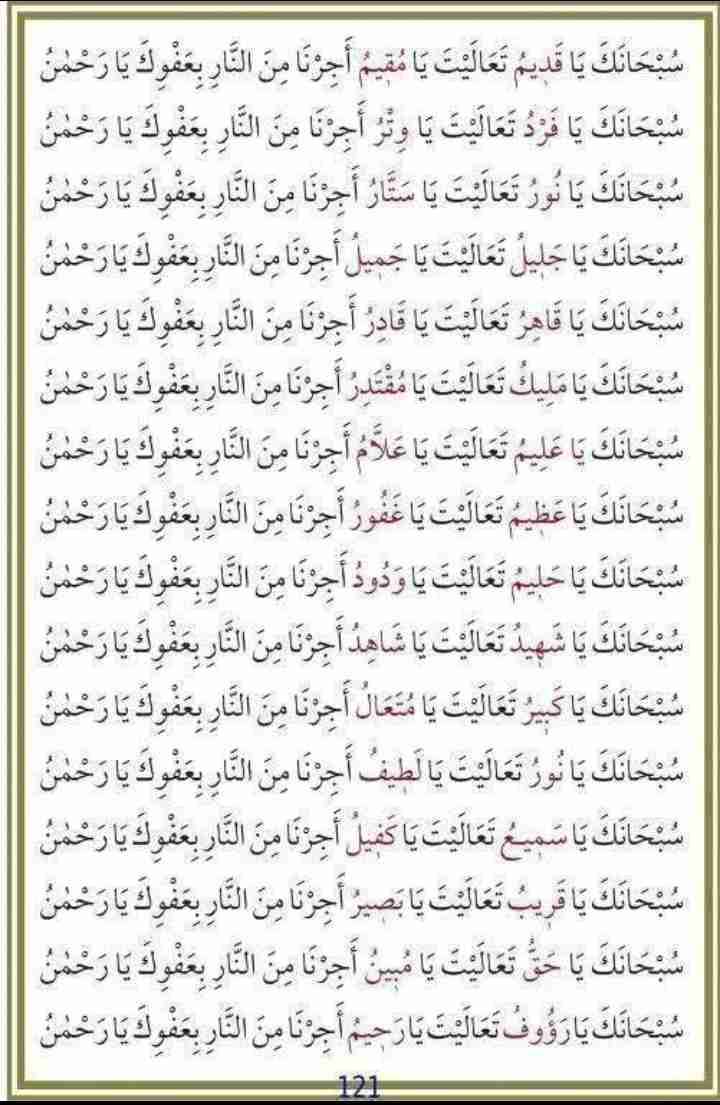 سُبْحَانَكَ يَا قَدِيمُ تَعَالَيْتَ يَا مُقِيمُ أَجِرْنَا مِنَ النَّارِ بِعَفْوِكَ يَا رَحْمٰنُ
سُبْحَانَكَ يَا فَرْدُ تَعَالَيْتَ يَا وِتْرُ أَجِرْنَا مِنَ النَّارِ بِعَفْوِكَ يَا رَحْمٰنُ
سُبْحَانَكَ يَا نُورُ تَعَالَيْتَ يَا سَتَّارُ أَجِرْنَا مِنَ النَّارِ بِعَفْوِكَ يَا رَحْمٰنُ
سُبْحَانَكَ يَا جَلِيلُ تَعَالَيْتَ يَا جَمِيلُ أَجِرْنَا مِنَ النَّارِ بِعَفْوِكَ يَا رَحْمٰنُ
سُبْحَانَكَ يَا قَاهِرُ تَعَالَيْتَ يَا قَادِرُ أَجِرْنَا مِنَ النَّارِ بِعَفْوِكَ يَا رَحْمٰنُ
سُبْحَانَكَ يَا مَلِيكُ تَعَالَيْتَ يَا مُقْتَدِرُ أَجِرْنَا مِنَ النَّارِ بِعَفْوِكَ يَا رَحْمٰنُ
سُبْحَانَكَ يَا عَلِيمُ تَعَالَيْتَ يَا عَلَّامُ أَجِرْنَا مِنَ النَّارِ بِعَفْوِكَ يَا رَحْمٰنُ
سُبْحَانَكَ يَا عَظِيمُ تَعَالَيْتَ يَا غَفُورُ أَجِرْنَا مِنَ النَّارِ بِعَفْوِكَ يَا رَحْمٰنُ
سُبْحَانَكَ يَا حَلِيمُ تَعَالَيْتَ يَا وَدُودُ أَجِرْنَا مِنَ النَّارِ بِعَفْوِكَ يَا رَحْمٰنُ
سُبْحَانَكَ يَا شَهِيدُ تَعَالَيْتَ يَا شَاهِدُ أَجِرْنَا مِنَ النَّارِ بِعَفْوِكَ يَا رَحْمٰنُ
سُبْحَانَكَ يَا كَبِيرُ تَعَالَيْتَ يَا مُتَعَالُ أَجِرْنَا مِنَ النَّارِ بِعَفْوِكَ يَا رَحْمٰنُ
سُبْحَانَكَ يَا نُورُ تَعَالَيْتَ يَا لَطِيفُ أَجِرْنَا مِنَ النَّارِ بِعَفْوِكَ يَا رَحْمٰنُ
سُبْحَانَكَ يَا سَمِيعُ تَعَالَيْتَ يَا كَفِيلُ أَجِرْنَا مِنَ النَّارِ بِعَفْوِكَ يَا رَحْمٰنُ
سُبْحَانَكَ يَا قَرِيبُ تَعَالَيْتَ يَا بَصِيرُ أَجِرْنَا مِنَ النَّارِ بِعَفْوِكَ يَا رَحْمٰنُ
سُبْحَانَكَ يَا حَقُّ تَعَالَيْتَ يَا مُبِينُ أَجِرْنَا مِنَ النَّارِ بِعَفْوِكَ يَا رَحْمٰنُ
سُبْحَانَكَ يَا رَؤُوفُ تَعَالَيْتَ يَا رَحِيمُ أَجِرْنَا مِنَ النَّارِ بِعَفْوِكَ يَا رَحْمٰنُ
121